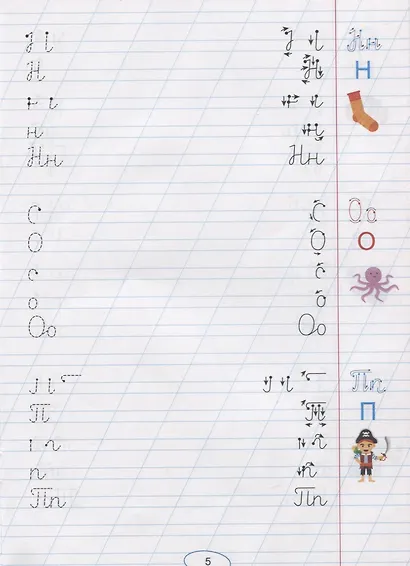 Нн
Н Н Н
н н
Нн Нн
С С Оо
О О О
с с
о о
Оо Оо
Пп
П П П
п п
Пп Пп
5